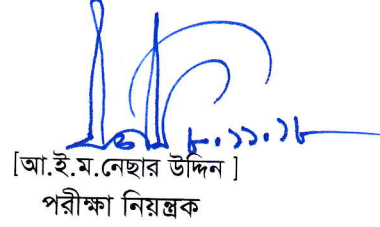 ৮.১১.১৮
[আ.ই.ম.নেছার উদ্দিন ]
পরীক্ষা নিয়ন্ত্রক